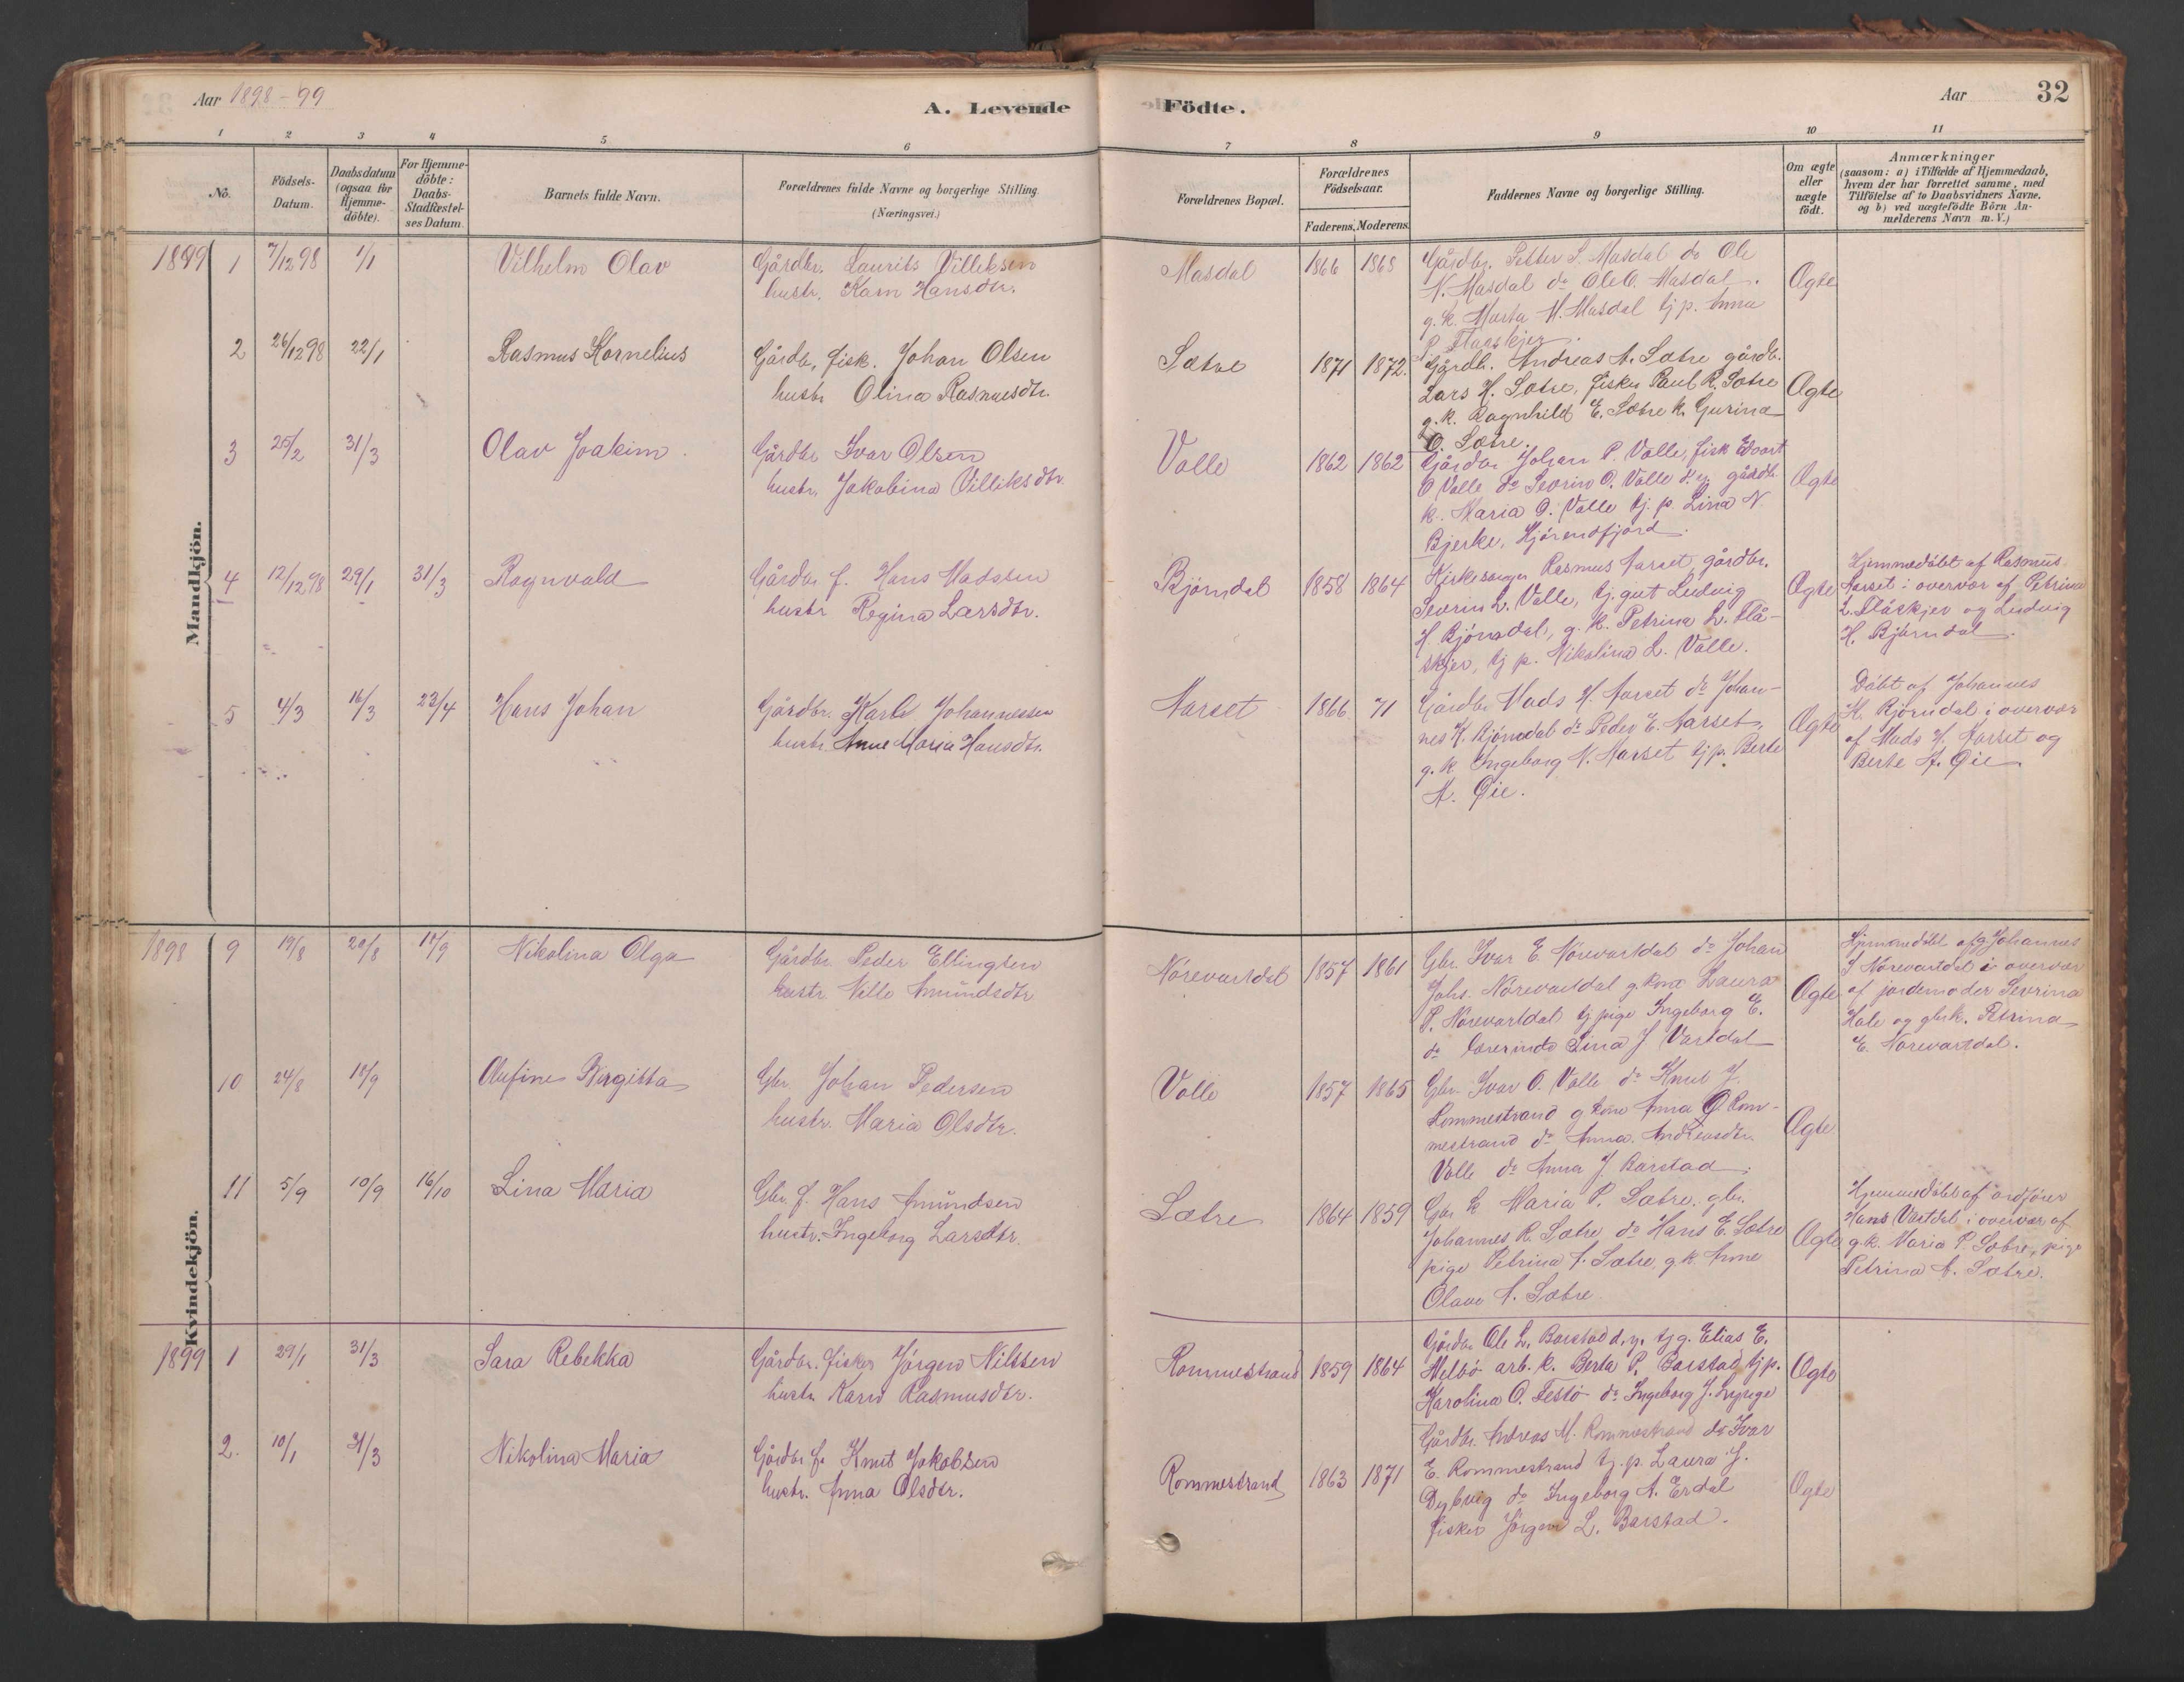 Aar 1898-99
A. Levende Födte.
Aar 32
1 2 3 4 5 6 7 8 9 10 11
No.
Födsels-Datum.
Daabsdatum (ogsaa for Hjemmedöbte).
For Hjemmedöbte: Daabs-Stadfæstelses Datum
Barnets fulde Navn.
Forældrenes fulde Navne og borgerlige Stilling. (Næringsvei.)
Forældrenes Bopæl.
Forældrenes Födselsaar.
Faderens. Moderens.
Faddernes Navne og borgerlige Stilling.
Om ægte eller uægte födt.
Anmærkninger (saasom: a) i Tilfælde af Hjemmedaab, hvem der har forrettet samme, med Tilföielse af to Daabsvidners Navne, og b) ved uægtefödte Börn Anmelderens Navn m. V.)
Mandkjön.
1899 1 7/12 98 1/1 Vilhelm Olav
Gårdbr. Laurits Villiksen
hustr. Karn Hansdtr.
Masdal 1866 1868
Gårdbr. Petter S. Masdal do Ole
N. Masdal do Ole O. Masdal.
g. k. Marta M. Masdal tj p. Anna
P. Flaaskjer.
Ægte
2 26/12 98 22/1 Rasmus Kornelius
Gårdbr, fisk. Johan Olsen
hustr Olina Rasmusdtr.
Sætre 1871 1872.
Gårdb. Andreas A. Sætre gårdb.
Lars H. Sætre, fisker Paul R. Sætre
g. k. Ragnhild E. Sætre k. Gurina
O. Sætre.
Ægte
3 25/2 31/3 Olav Joakim.
Gårdbr Ivar Olsen
hustr. Jakobina Villiksdtr.
Valle 1862 1862
Gårdbr Johan P. Valle, fisk Edvart
O Valle do Sevrin O. Valle d. y. gårdb.
k. Maria O. Valle tj. p. Lina N.
Bjerke, Hjörendfjord.
Ægte
4 12/12 98 29/1 31/3 Ragnvald
Gårdbr f. Hans Madssen
hustr Regina Larsdtr.
Björndal 1858 1864
Kirkesanger Rasmus Aarset, gårdbr.
Sevrin L. Valle, tj. gut Ludvig
H Björndal, g. k. Petrina L. Flå-
skjer, tj p. Nikolina L. Valle.
Ægte
Hjemmedöbt af Rasmus
Aarset i overvær af Petrina
L. Flåskjer og Ludvig
H. Björndal.
5 4/3 16/3 23/4 Hans Johan
Gårdbr. Karl Johannessen
hustr. Anne Maria Hansdtr.
Aarset 1866 71
Gårdbr Mads H. Aarset do Johan-
nes H. Björndal do Peder E. Aarset.
g. k Ingeborg N. Aarset tj p. Berte
A. Øie.
Ægte
Döbt af Johannes
H. Björndal i overvær
af Mads H. Aarset og
Berte A. Øie
Kvindekjön.
1898 9 19/8 20/8 18/9 Nikolina Olga
Gårdbr. Peder Ellingsen
hustr. Nille Amundsdtr
Nörevartdal 1857 1861
Gbr. Ivar E. Nörevartdal do Johan
Johs. Nörevartdal g. kone Laura
P. Nörevartdal tj pige Ingeborg E.
do Lærerinde Lina J Vartdal
Ægte
Hjemmedöbt af Johannes
J Nörevartdal i overvær
af jordemoder Sevrina
Hole og gbrk. Petrina
E. Nörevartdal.
10 24/8 18/9 Olufine Birgitta
Gbr. Johan Pedersen
hustr. Maria Olsdtr.
Valle 1857 1865
Gbr. Ivar O. Valle do Knut J.
Rommestrand g kone Anna O Rom-
mestrand do Anna Andreasdtr.
Valle do Anna J Barstad.
Ægte
11 5/9 10/9 16/10 Lina Maria
Gbr. f. Hans Amundsen
hustr. Ingeborg Larsdtr.
Sætre 1864 1859
Gbr k Maria P. Sætre, gbr.
Johannes R. Sætre do Hans E. Sætre
pige Petrina A. Sætre, g. k. Anne
Olave A. Sætre.
Ægte
Hjemmedöbt af ordförer
Hans Vartdal i overvær af
g. k. Maria P. Sætre, pige
Petrina A. Sætre.
1899 1 29/1 31/3 Sara Rebekka
Gårdbr. fisker Jörgen Nilssen
hustr Karn Rasmusdtr.
Rommestrand 1859 1864
Gårdbr Ole L. Barstad d. y. tj g. Elias E.
Melsö arb. k. Berta P. Barstad, tj p.
Karolina O. Festö do Ingeborg J. Lynge
Ægte
2. 10/1 31/3 Nikolina Maria
Gårdbr f. Knut Jakobsen
hustr. Anna Olsdtr.
Rommestrand 1863 1871
Gårdbr. Andreas M. Rommestrand do Ivar
E. Rommestrand tj. p. Laura J.
Dybvig do Ingeborg A. Erdal
fisker Jörgen L. Barstad.
Ægte